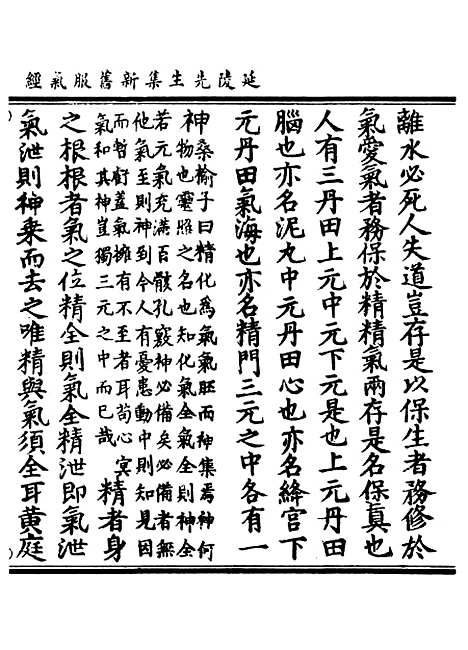 延陵先生集新舊服氣經
離水必死人失道豈存是以保生者務修於
氣愛氣者務保於精精氣兩存是名保真也
人有三丹田上元中元下元是也上元丹田
腦也亦名泥丸中元丹田心也亦名絳宮下
元丹田氣海也亦名精門三元之中各有一
神桑榆子曰精化為氣氣旺而神集焉神何
物也靈照之名也知化氣全氣全則神全
若元氣充滿百骸孔竅神必備矣必備者無
他氣至則神到令人有憂恚動中則知見因
而暫虧蓋氣擁有不至者耳苟心冥
氣和其神豈獨三元之中而已哉精者身
之根根者氣之位精全則氣全精泄即氣泄
氣泄則神乘而去之唯精與氣須全耳黃庭